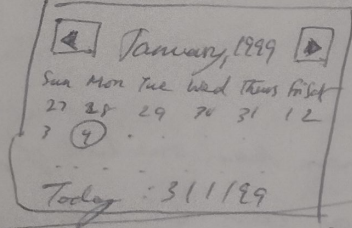 January, 1999
Sun Mon Tue Wed Thurs Fri Sat
27 28 29 30 31 1 2
3 4
Today : 3/1/99